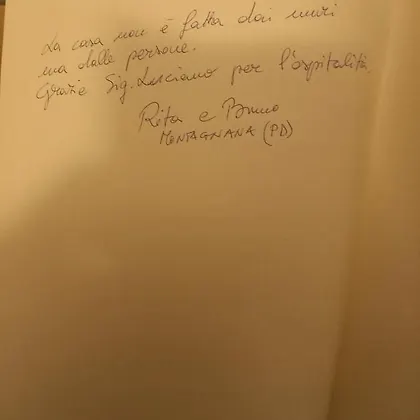 La casa non è fatta dai muri
ma dalle persone.
Grazie Sig. Luciano per l'ospitalità.
Rita e Bruno
MONTAGNANA (PD)